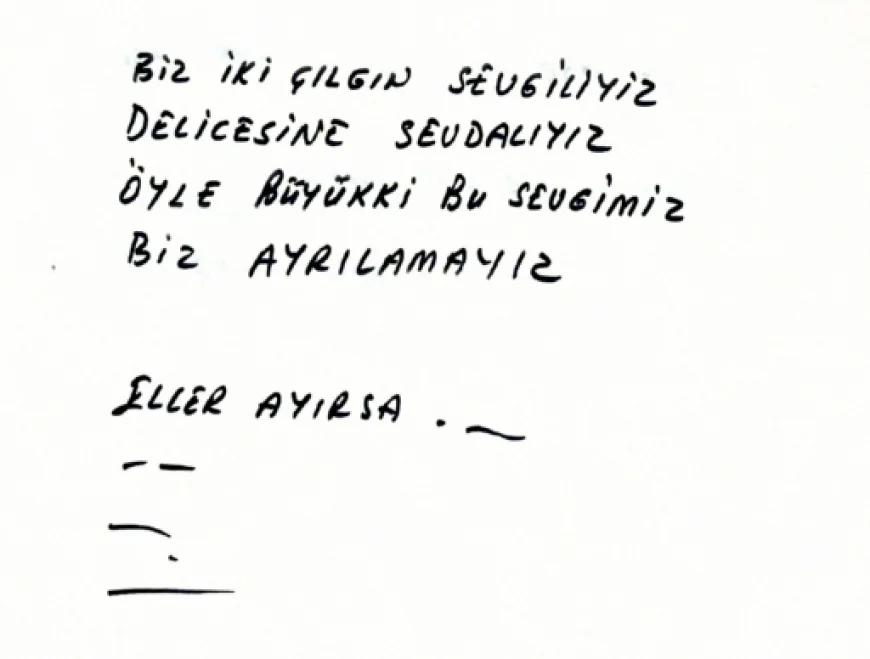 BİZ İKİ ÇILGIN SEVGİLİYİZ
DELİCESİNE SEVDALIYIZ
ÖYLE BÜYÜKKİ BU SEVGİMİZ
BİZ AYRILAMAYIZ
ELLER AYIRSA .